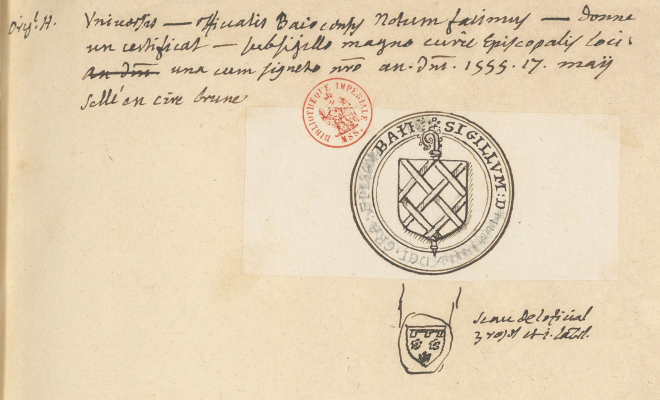 Orig. H.
Universis — officialis Baiocensis Notum facimus — donne
un certificat — sub sigillo magno curie Episcopalis loci
an dni una cum signeto nro an. dni. 1555. 17. maij
sellé en cire brune
BIBLIOTHÈQUE IMPÉRIALE
MSS.
SIGILLVM : D
DEI · GRA · EPI
BAII
Sceau de l'oficial
3 roses et i. label.